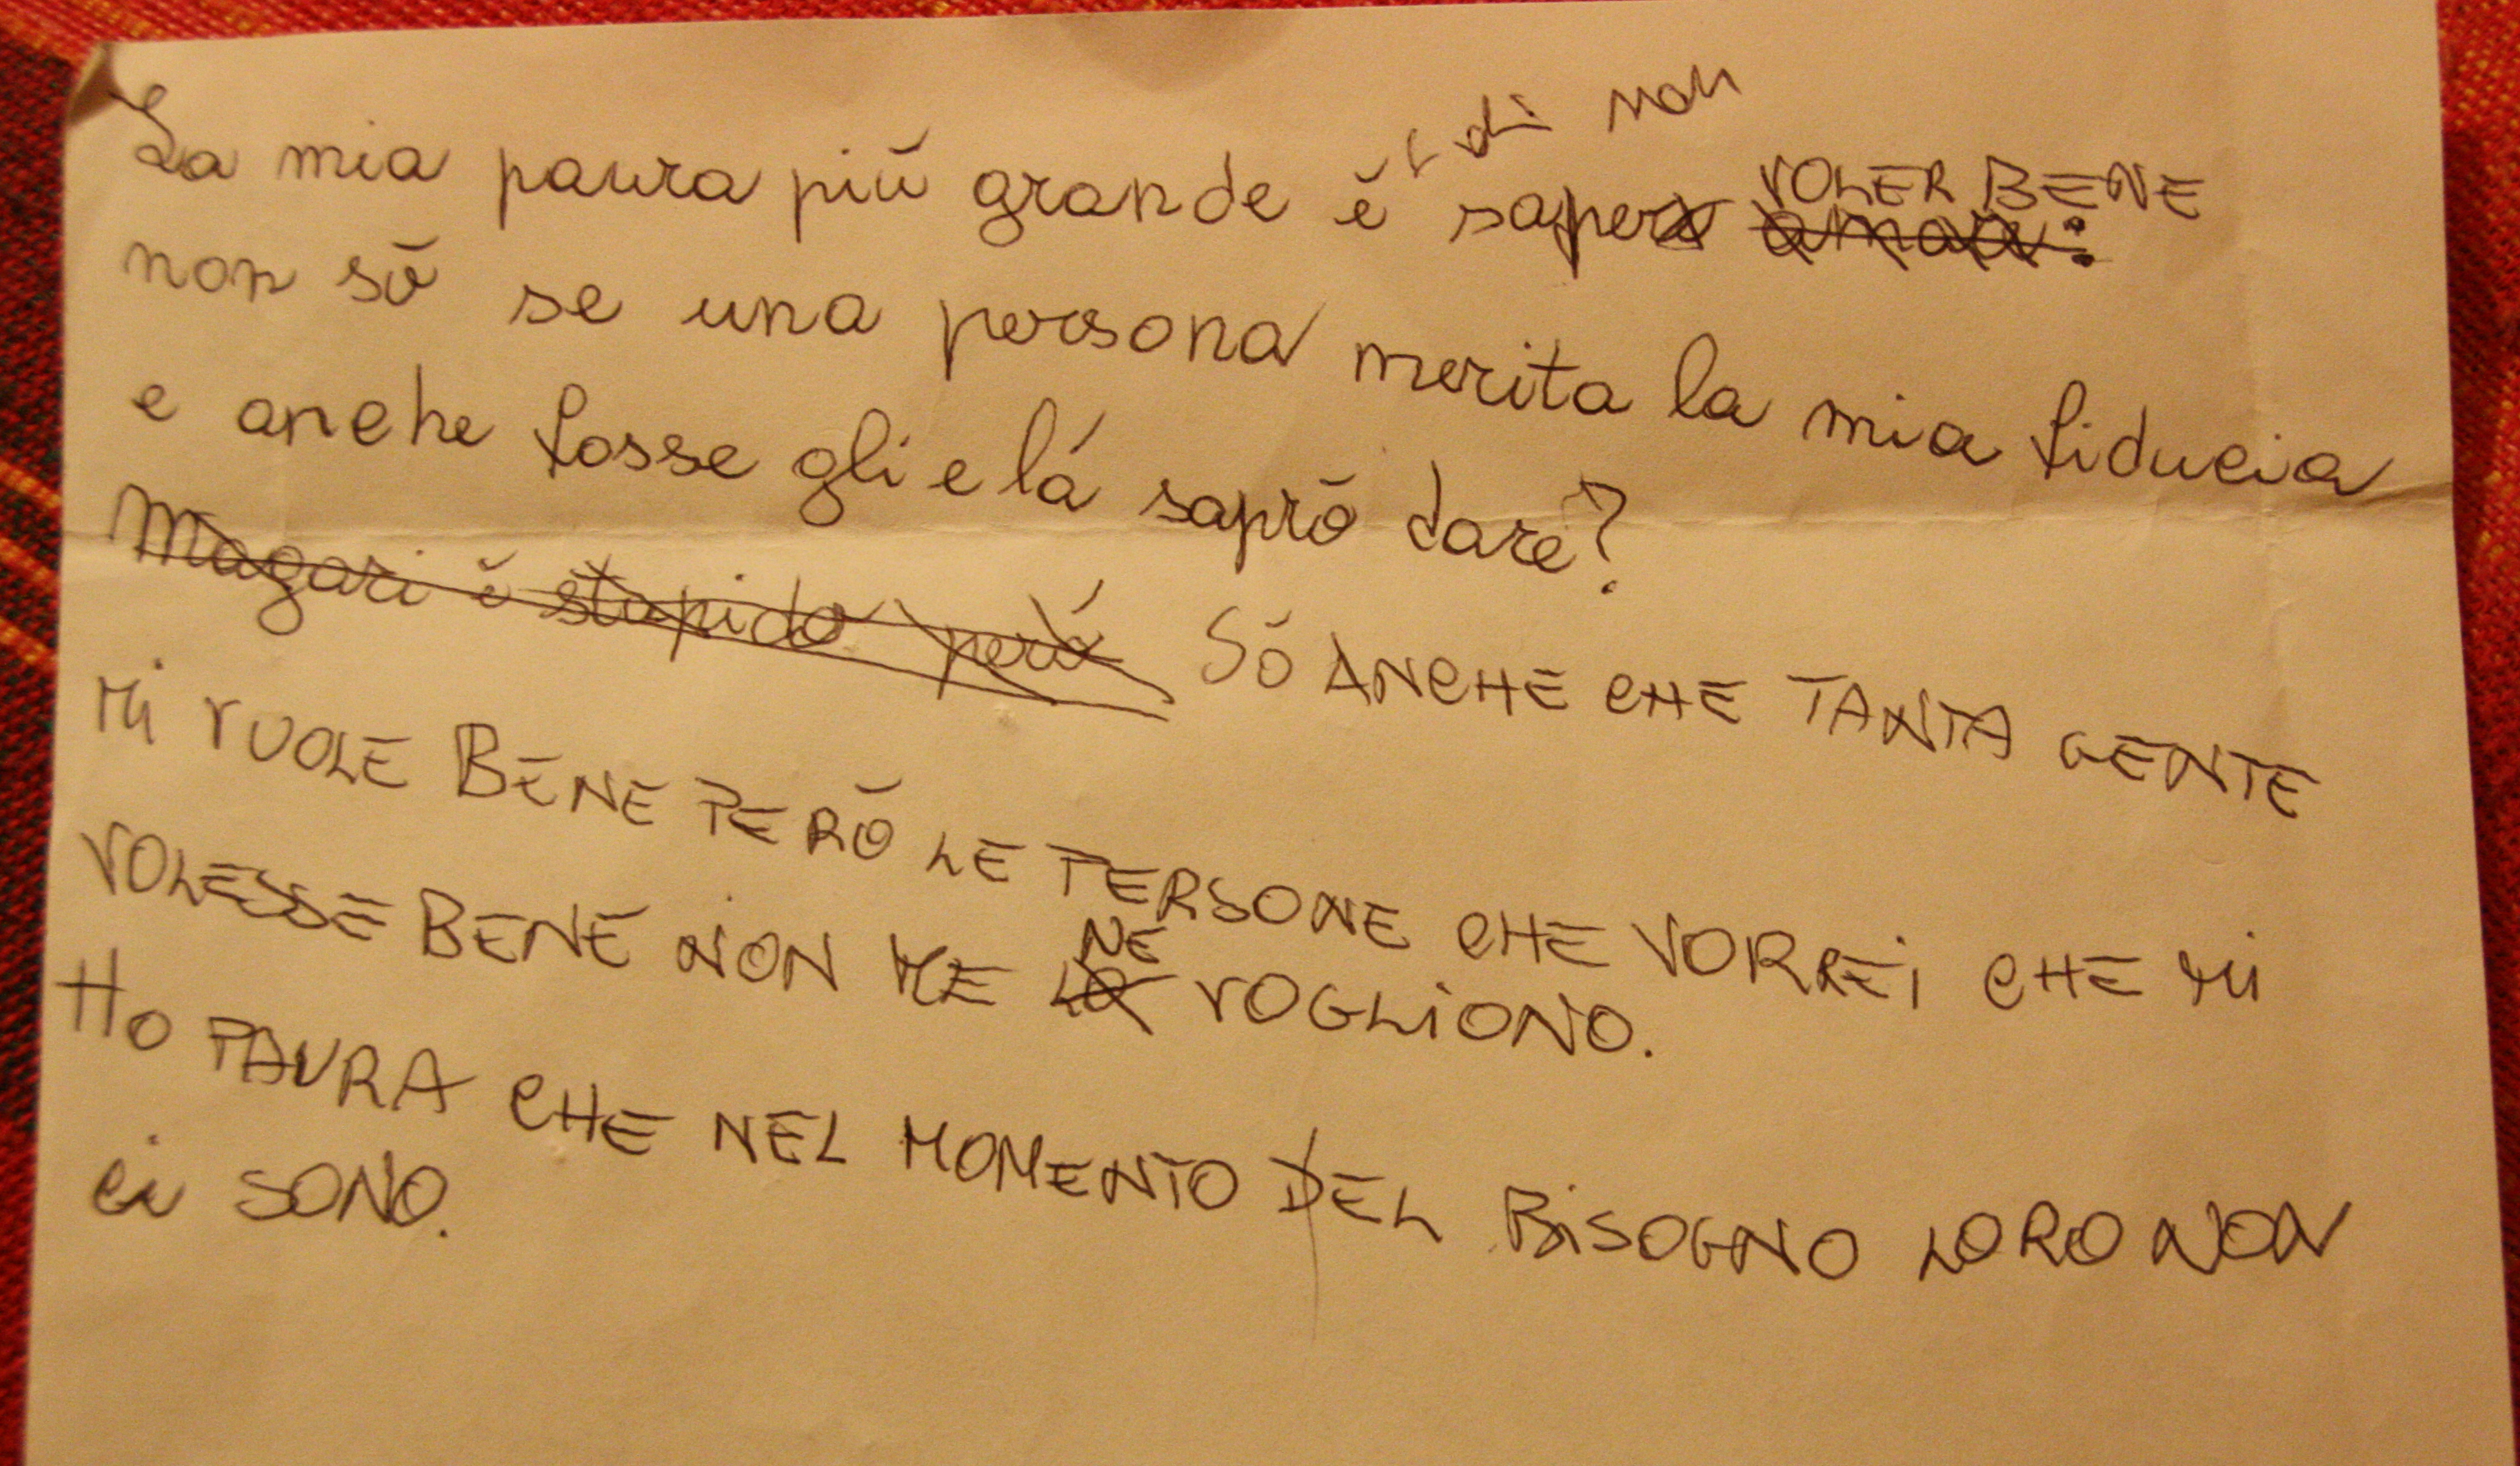 La mia paura più grande è di non saper VOLER BENE
non sò se una persona merita la mia fiducia
e anche fosse gli e lá saprò dare?
Magari è stupido però Sò ANCHE CHE TANTA GENTE
Mi VUOLE BENE PERÒ LE PERSONE CHE VORREi CHE Mi
VOLESSE BENE NON ME NE VOGLiONO.
Ho PAURA CHE NEL MOMENTO DEL BiSOGNO LORO NON
Ci SONO.